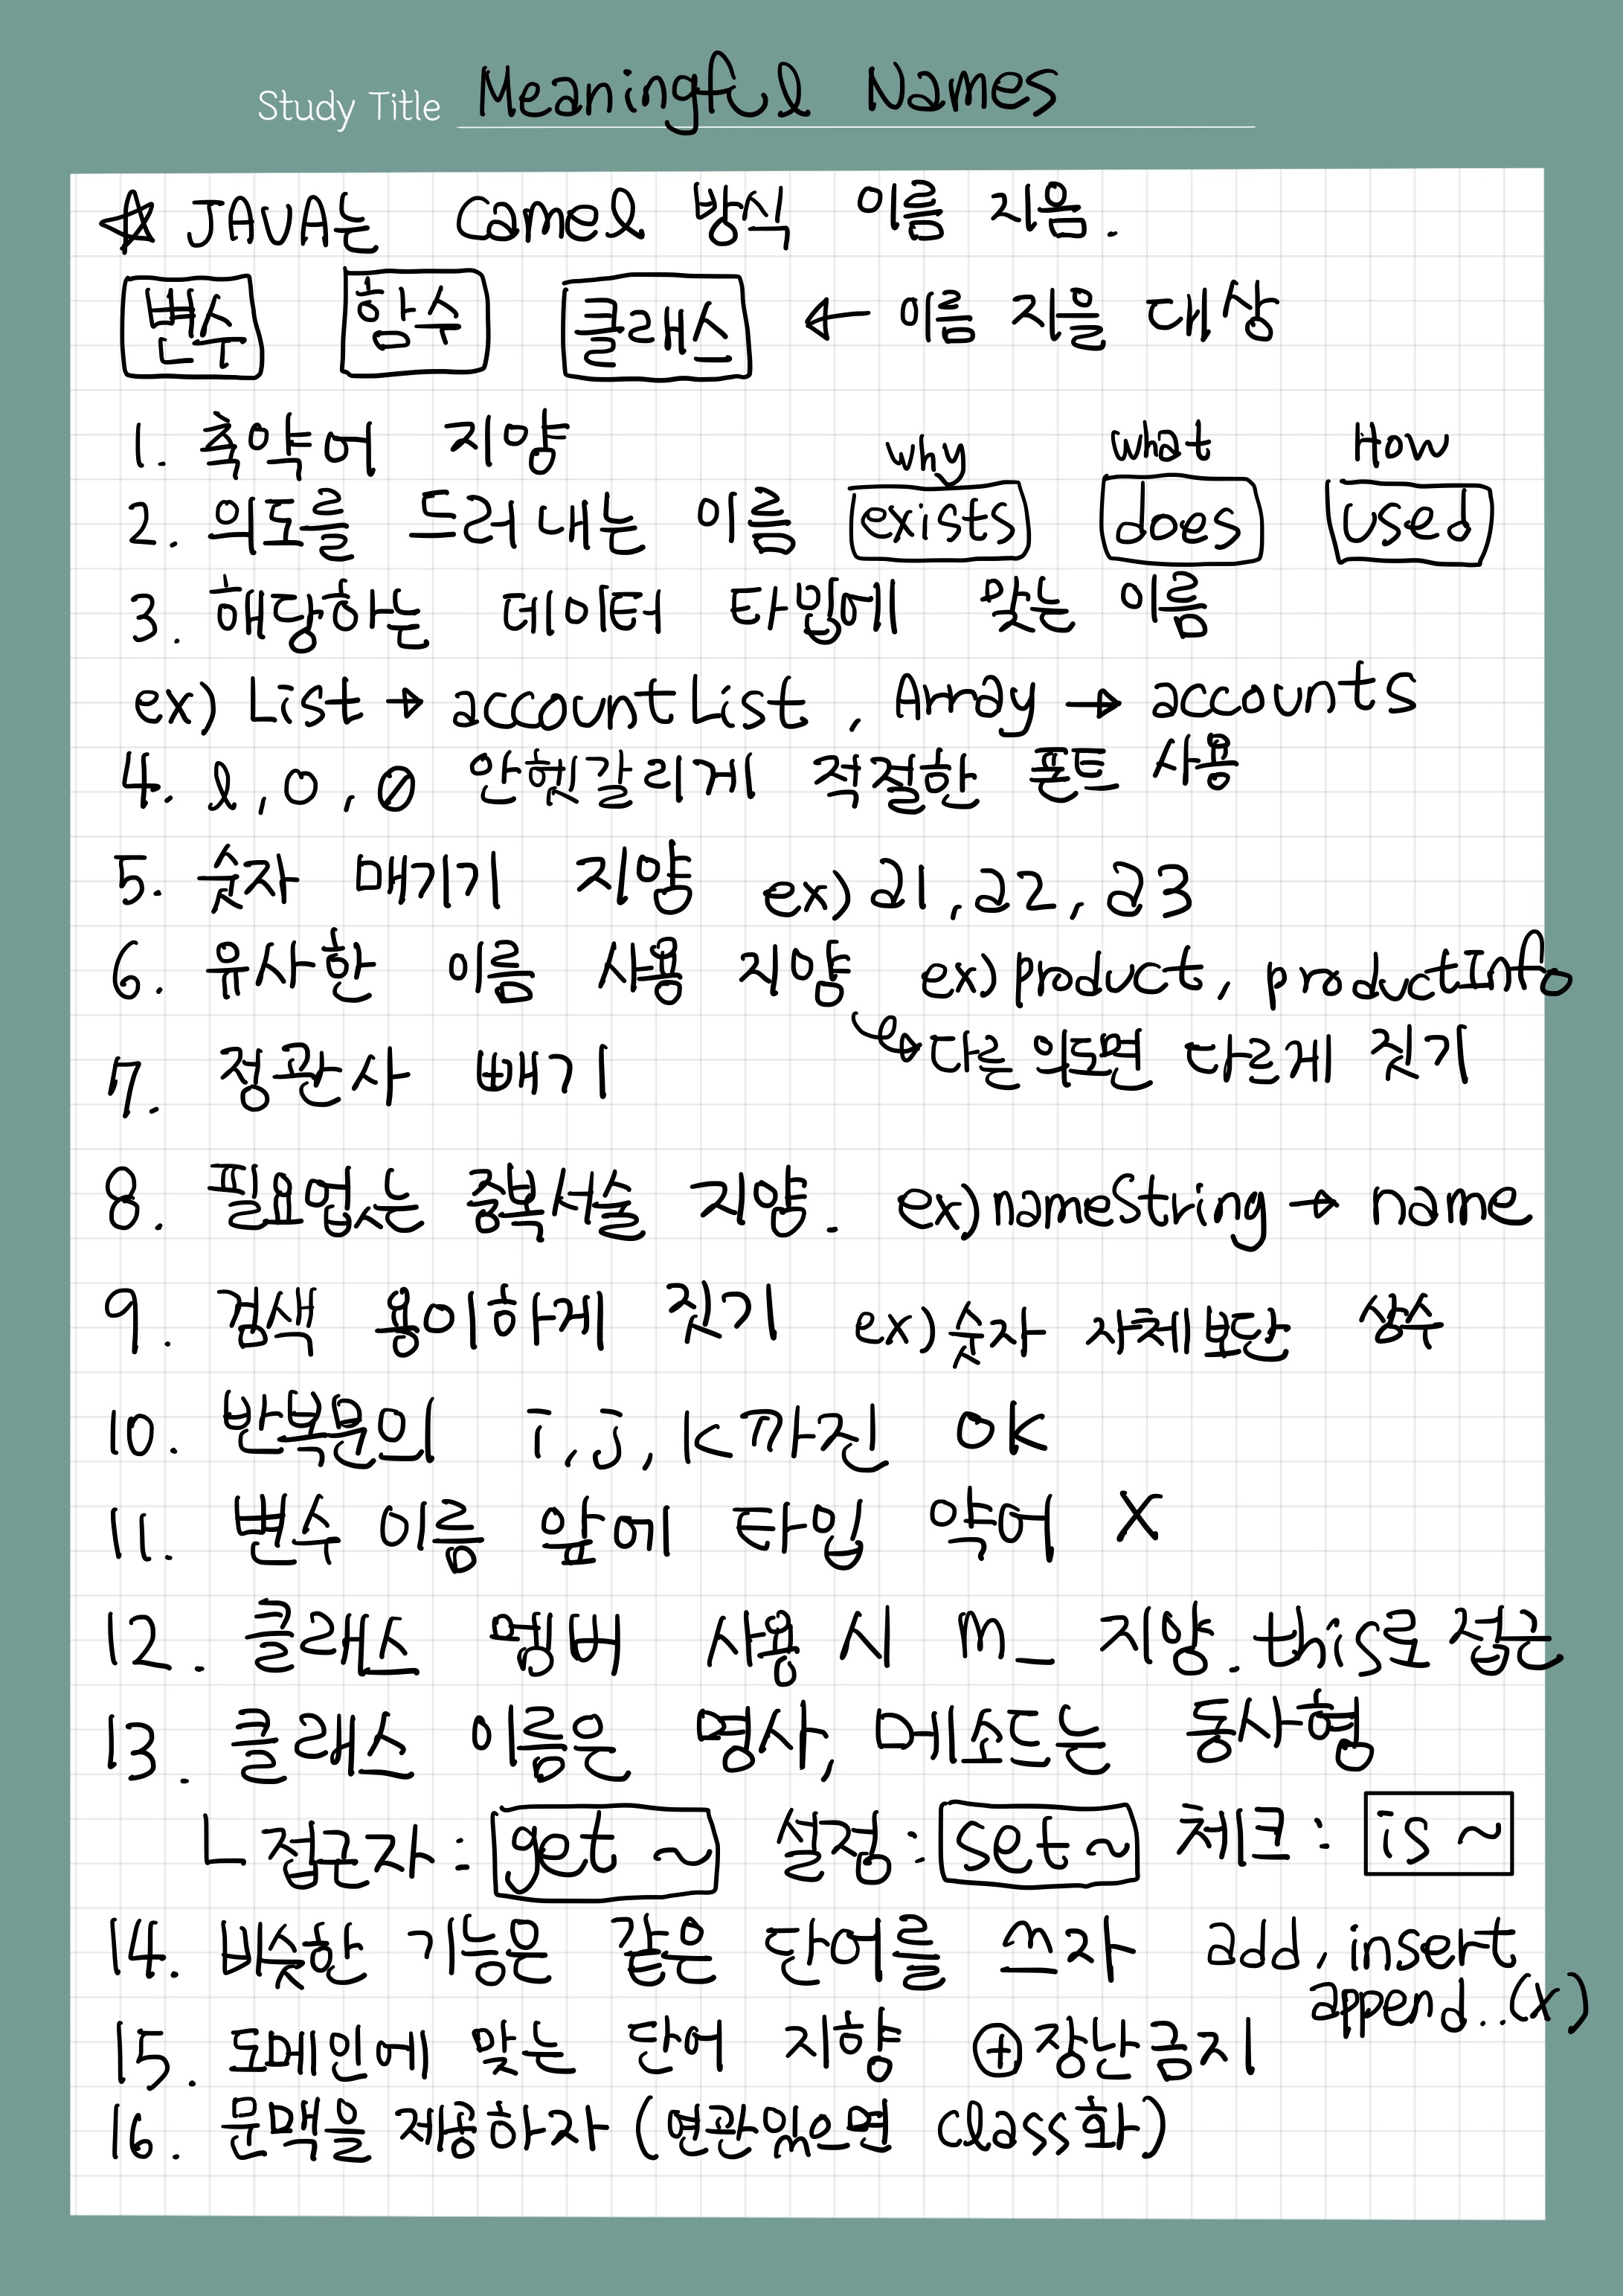 Study Title Meaningful Names
☆ JAVA는 Camel 방식 이름 지음.
변수 함수 클래스 ← 이름 지을 대상
1. 축약어 지양
why what How
2. 의도를 드러내는 이름 exists does used
3. 해당하는 데이터 타입에 맞는 이름
ex) List → accountList, Array → accounts
4. l, O, 0 안헷갈리게 적절한 폰트 사용
5. 숫자 매기기 지양 ex) a1, a2, a3
6. 유사한 이름 사용 지양 ex) product, productInfo
↪ 다른 의도면 다르게 짓기
7. 정관사 빼기
8. 필요없는 중복서술 지양. ex) nameString → name
9. 검색 용이하게 짓기 ex) 숫자 자체보단 상수
10. 반복문의 i, j, k까진 OK
11. 변수 이름 앞에 타입 약어 X
12. 클래스 멤버 사용 시 m_ 지양. this로 접근
13. 클래스 이름은 명사, 메소드는 동사형
ㄴ 접근자: get ~ 설정: set ~ 체크: is ~
14. 비슷한 기능은 같은 단어를 쓰자 add, insert
append..(X)
15. 도메인에 맞는 단어 지향 ⊕ 장난금지
16. 문맥을 제공하자 (연관있으면 class화)